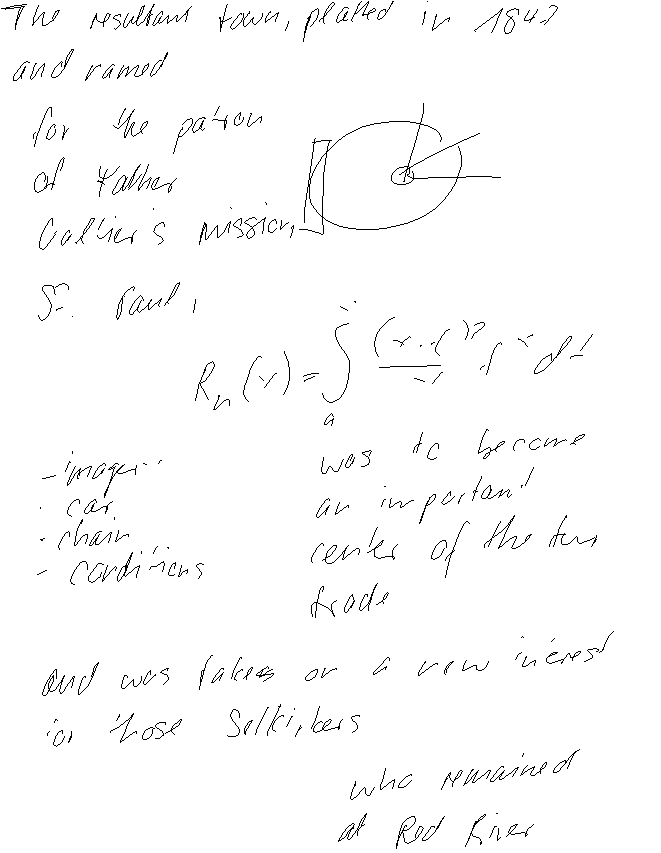 The resultant town, platted in 1843
and named
for the patron
of Father
Galtier's mission,
St. Paul,
R_n(x) = ∫
a
- imager
- car
- chain
- conditions
was to become
an important
center of the fur
trade
and was takes on a new interest
for those Selkirkers
who remained
at Red River